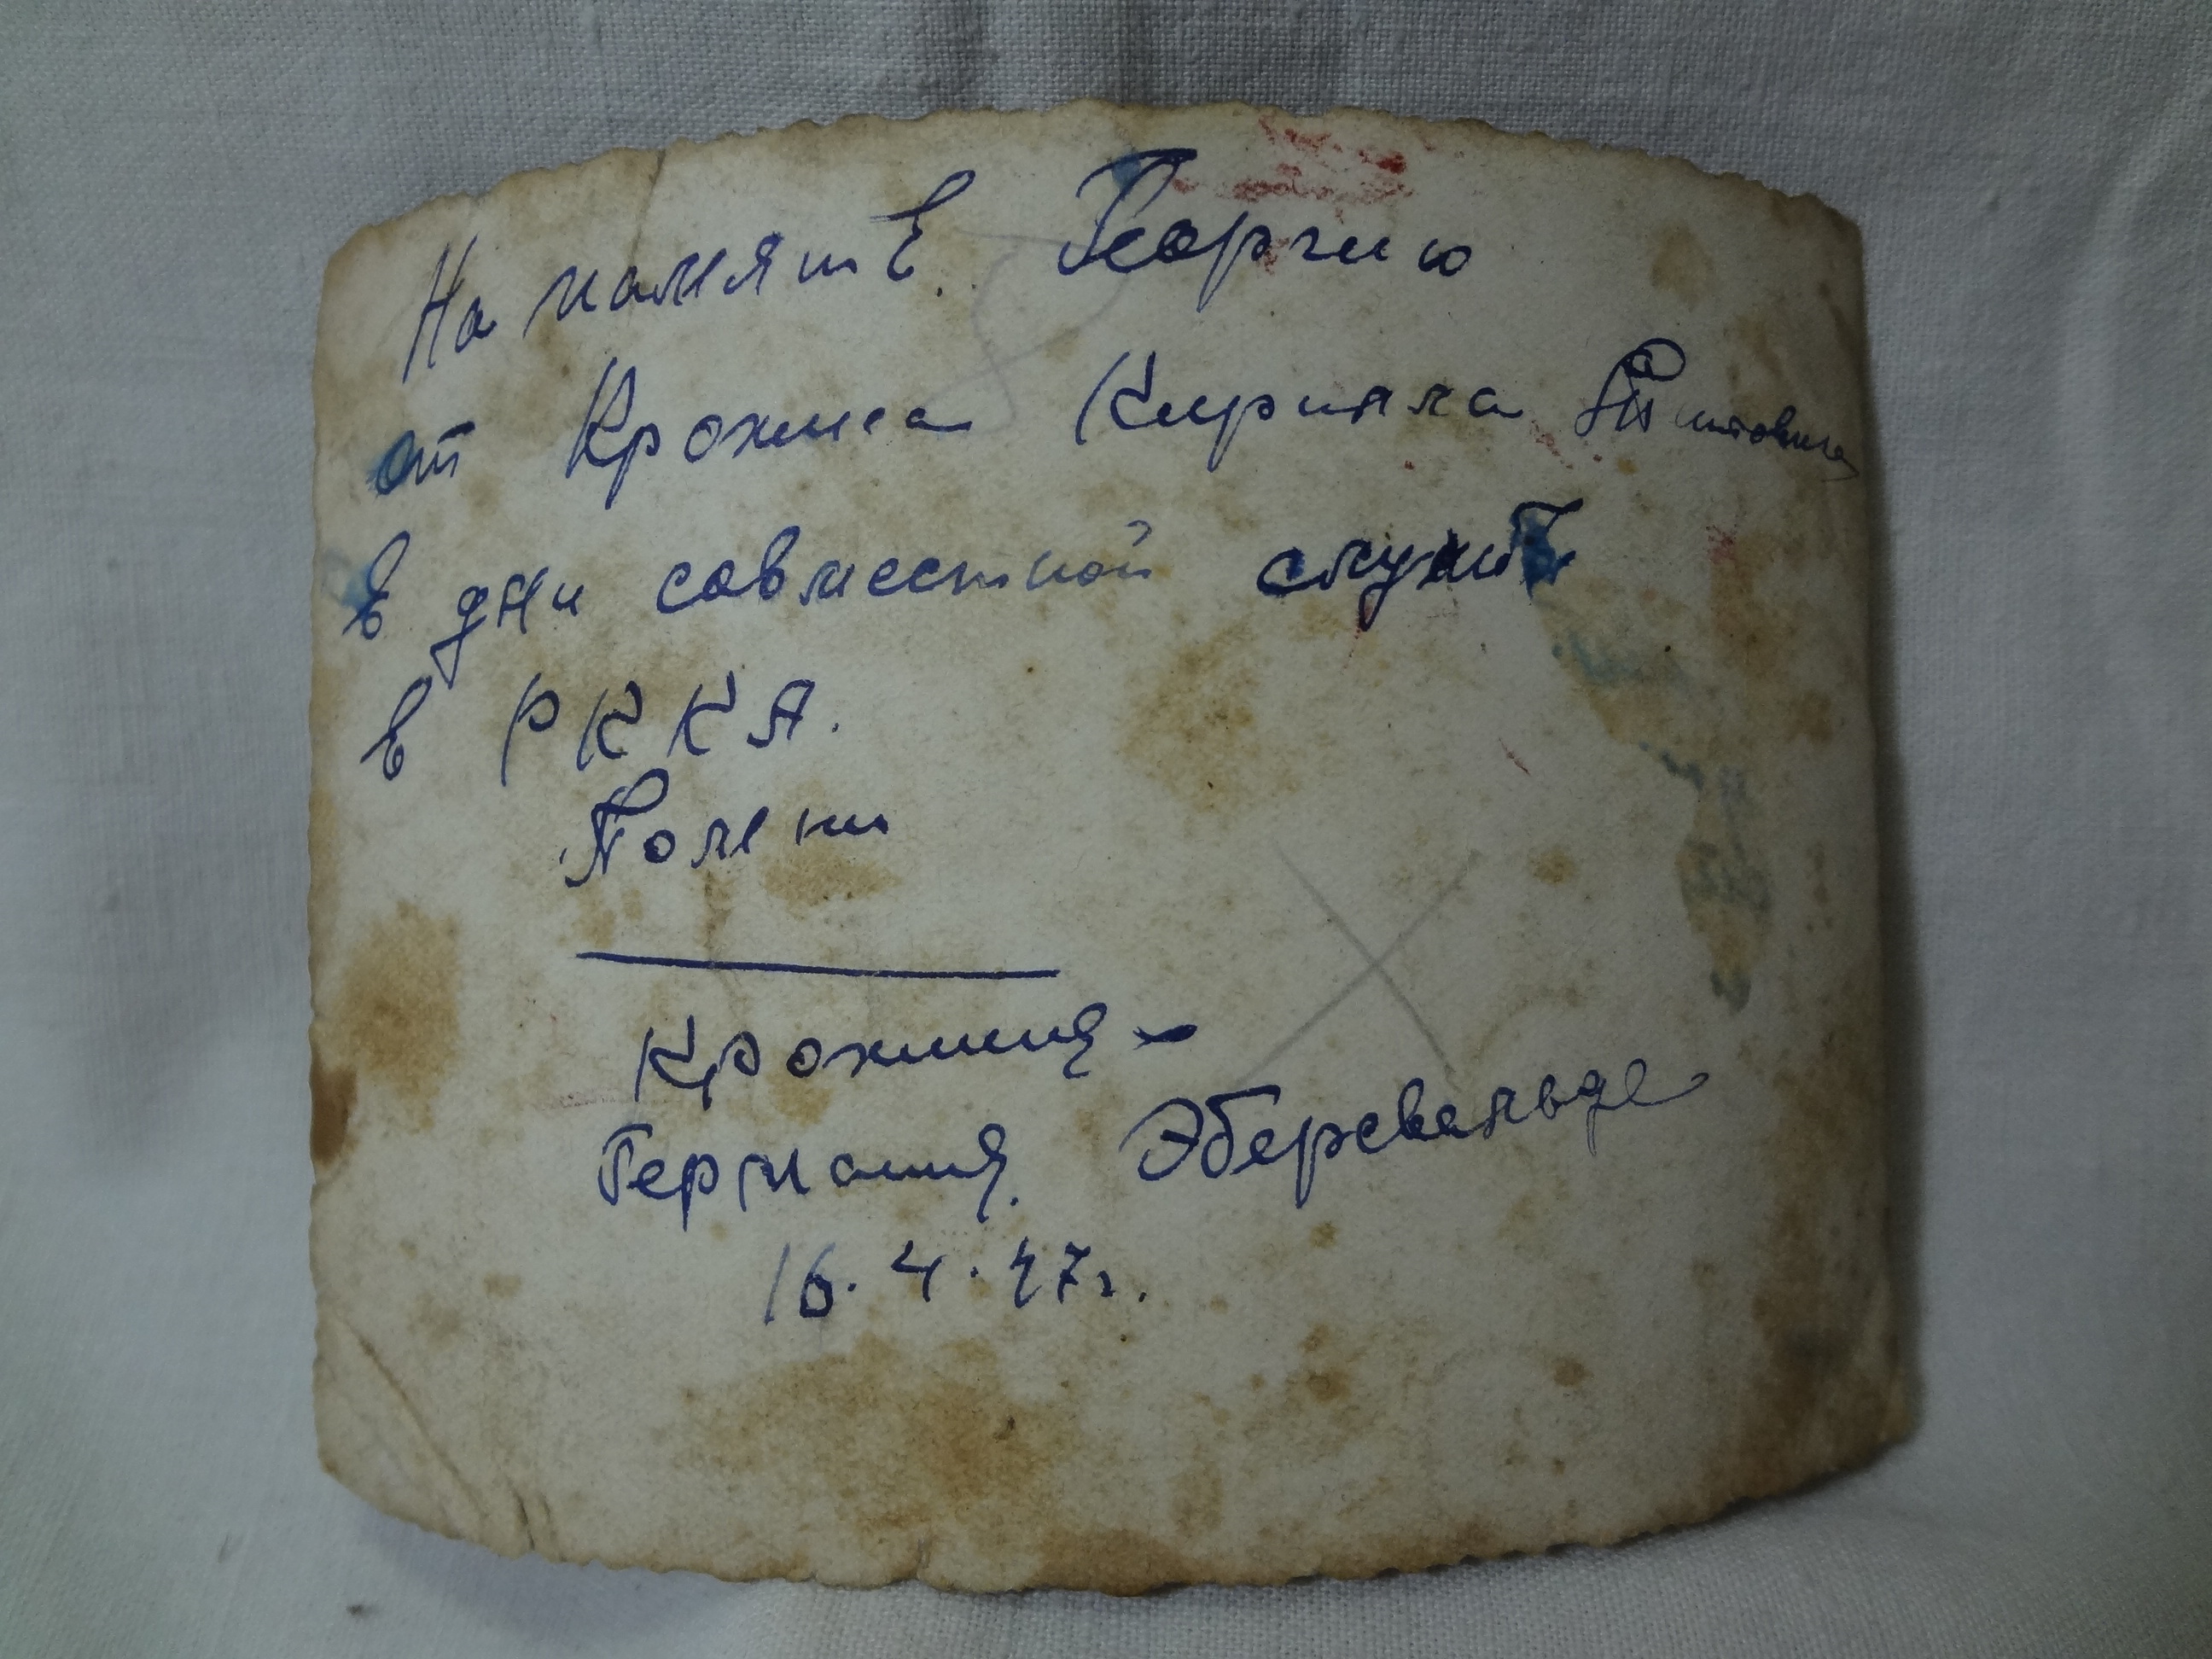 На память Георгию
от Крохина Кирилла Титовича
в дни совместной службы
в РККА.
Помни
Германия. Эберсвальде
16.4.47г.